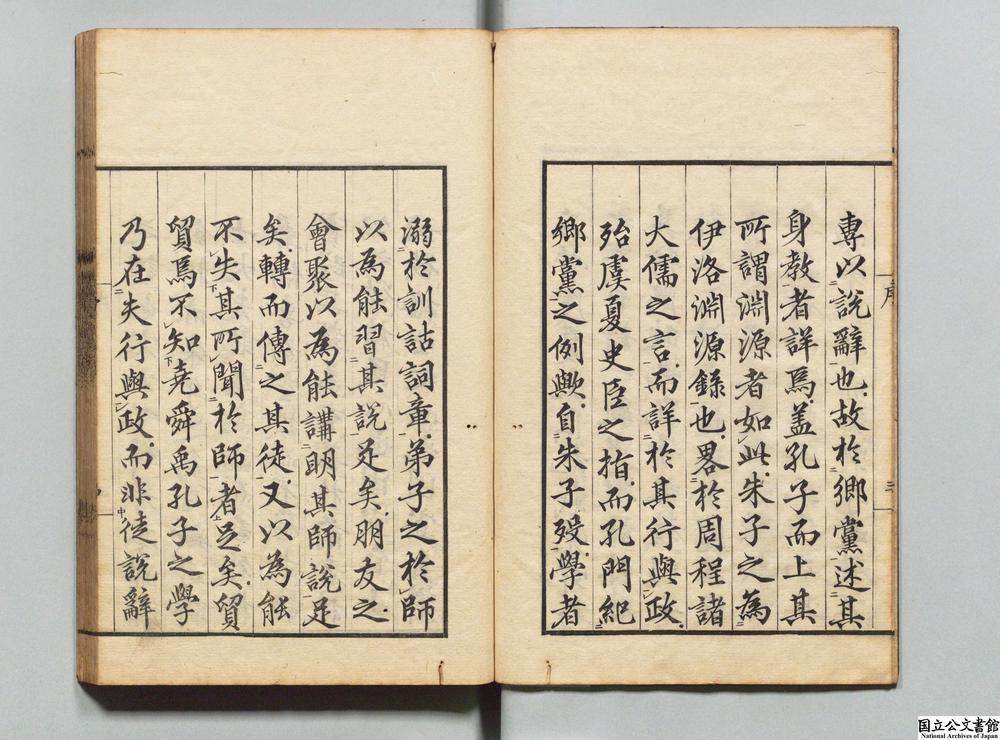 専以說辭也故於鄉黨述其
身教者詳焉盖孔子而上其
所謂淵源者如此朱子之為
伊洛淵源錄也畧於周程諸
大儒之言而詳於其行與政
殆虞夏史臣之指而孔門紀
鄉黨之例歟自朱子歿學者
溺於訓詁詞章弟子之於師
以為能習其說足矣朋友之
會聚以為能講明其師說足
矣轉而傳之其徒又以為能
不失其所聞於師者足矣貿
貿焉不知堯舜禹孔子之學
乃在夫行與政而非徒說辭
序
国立公文書館
National Archives of Japan